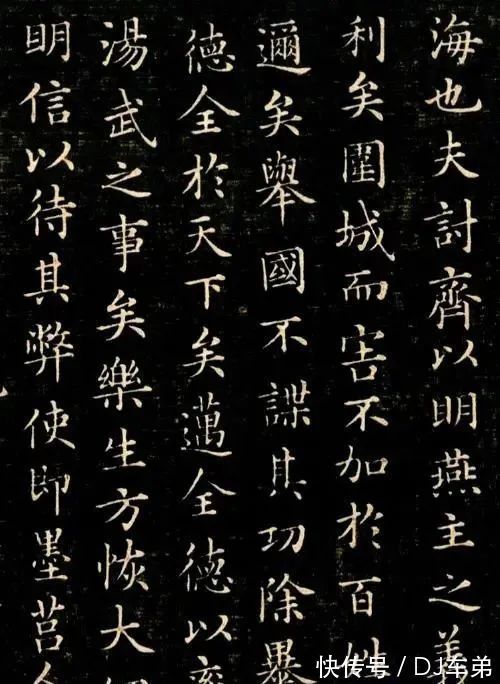 海也夫討齊以明燕主之義
利矣圍城而害不加於百姓
邇矣舉國不謀其功除暴
德全於天下矣邁全德以率
湯武之事矣樂生方恢大
明信以待其弊使即墨莒人
快传号 / DJ车弟